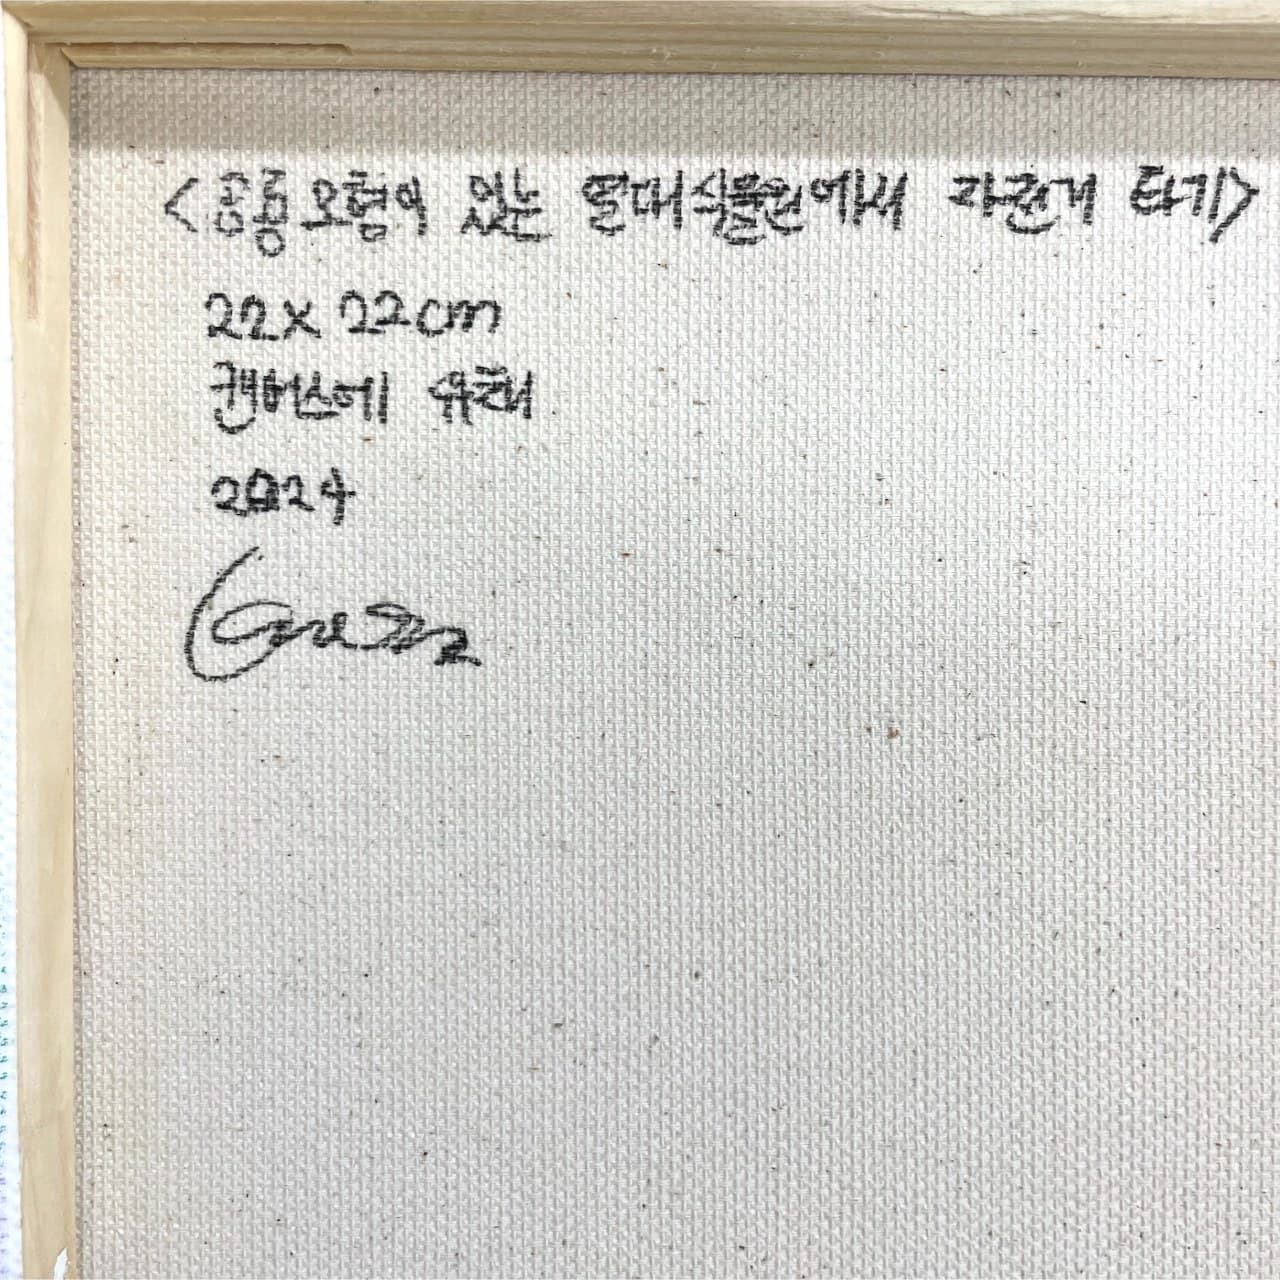 <공룡 모형이 있는 열대식물원에서 자전거 타기>
22 x 22 cm
캔버스에 유채
2024